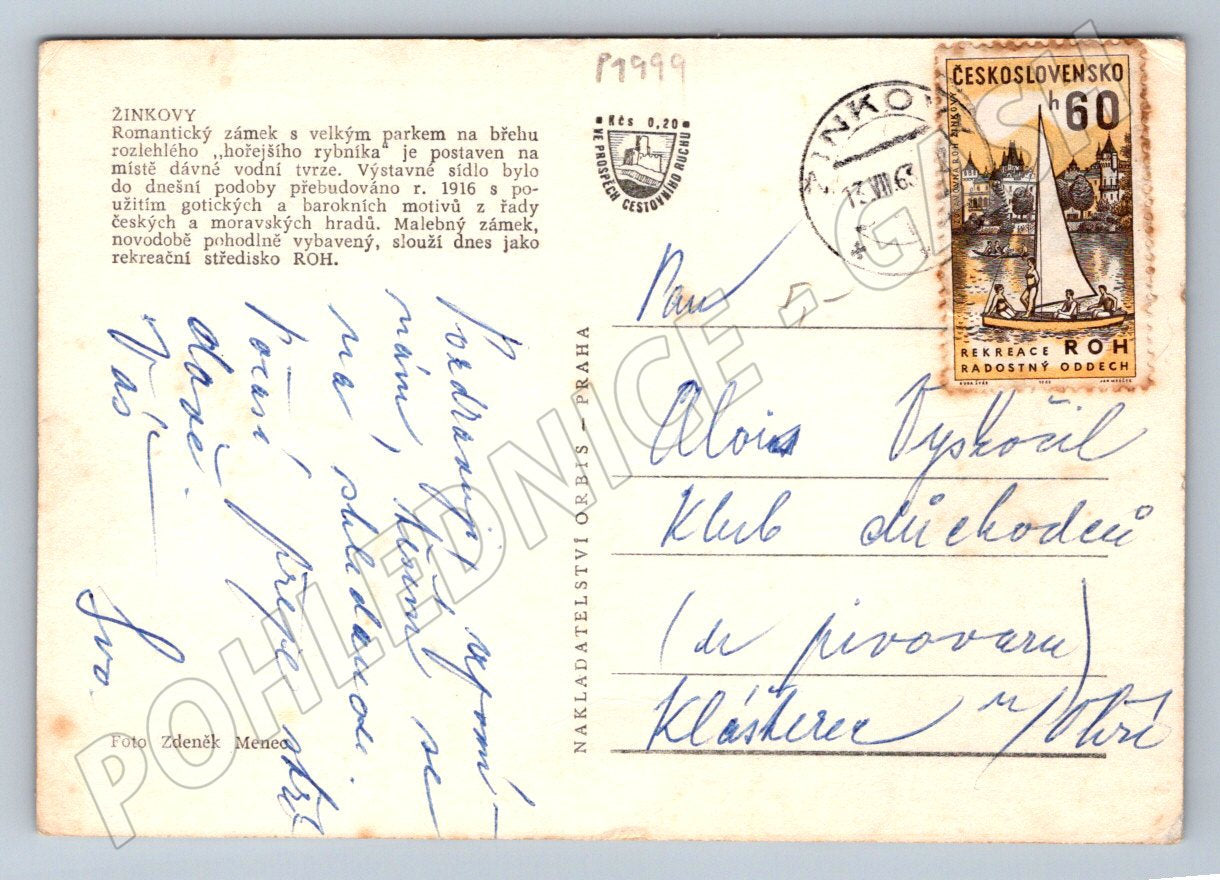 P1999
ŽINKOVY
Romantický zámek s velkým parkem na břehu
rozlehlého „hořejšího rybníka" je postaven na
místě dávné vodní tvrze. Výstavné sídlo bylo
do dnešní podoby přebudováno r. 1916 s po-
užitím gotických a barokních motivů z řady
českých a moravských hradů. Malebný zámek,
novodobě pohodlně vybavený, slouží dnes jako
rekreační středisko ROH.
Kčs 0,20
VE PROSPĚCH CESTOVNÍHO RUCHU
ŽINKOVY
13.VII.63
ČESKOSLOVENSKO
h 60
REKREACE ROH
RADOSTNÝ ODDECH
Pozdravuji vzpomí-
nám, těším se
na shledanou.
Počasí přeje stří
davě.
Váš
Ivo.
Foto Zdeněk Menec
NAKLADATELSTVÍ ORBIS – PRAHA
Pan
Alois Vyskočil
Klub důchodců
(u pivovaru)
Klášterec n/Ohří
POHLEDNICE - GASH